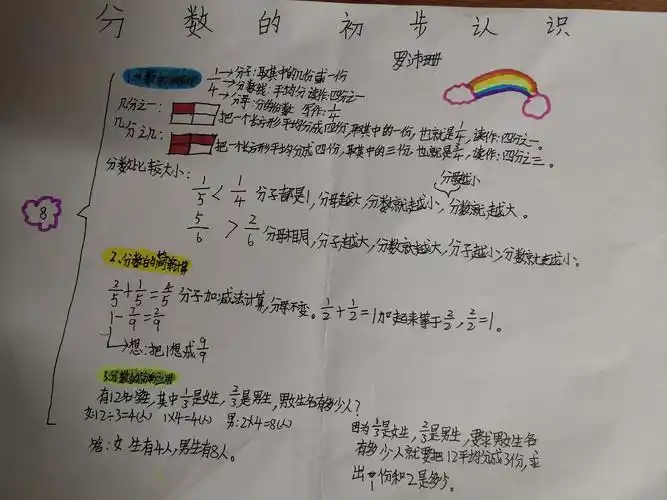 分数的初步认识
罗沛珊
1/4 → 分子:取其中的几份或一份
→ 分数线:平均分 读作:四分之一
→ 分母:分的份数 写作:1/4
几分之一: 把一个长方形平均分成四份,取其中的一份,也就是1/4,读作:四分之一。
几分之几: 把一个长方形平均分成四份,取其中的三份,也就是3/4,读作:四分之三。
分数比较大小:
分母越小
1/5 < 1/4 分子都是1,分母越大,分数就越小,分数就越大。
5/6 > 2/6 分母相同,分子越大,分数就越大,分子越小,分数就越小。
8
2、分数的简单计算
3/5+1/5=4/5 分子加减法计算,分母不变。1/2+1/2=1加起来等于2/2,2/2=1。
1-7/9=2/9
→想:把1想成9/9
3.分数的简单应用
有12名学生,其中1/3是女生,2/3是男生,男女生各有多少人?
女:12÷3=4(人) 1×4=4(人) 男:2×4=8(人)
答:女生有4人,男生有8人。
因为1/3是女生,2/3是男生,要求男女生各
有多少人就要把12平均分成3份,求
出1份和2是多少。